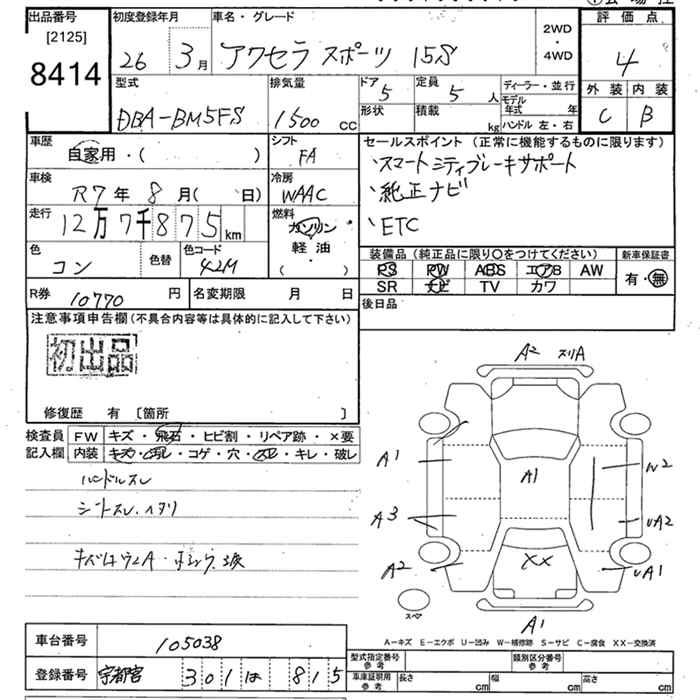 出品番号
[2125]
8414
初度登録年月
26年 3月
車名・グレード
アクセラ スポーツ 15S
2WD
・
4WD
評価点
4
外装 内装
C B
型式
DBA-BM5FS
排気量
1500 cc
ドア
5
形状
定員
5 人
積載
kg
ディーラー・並行
モデル年式 年
ハンドル 左・右
車歴
自家用・( )
シフト
FA
車検
R7年 8月( 日)
冷房
WAAC
走行
12万7千875 km
燃料
ガソリン
軽油
( ・ )
色
コン
色替
色コード
42M
セールスポイント (正常に機能するものに限ります)
・スマートシティブレーキサポート
・純正ナビ
・ETC
装備品 (純正品に限り○をつけてください)
PS PW ABS エアB AW
SR ナビ TV カワ
新車保証書
有・無
R券
10770 円
名変期限 月 日
後日品
注意事項申告欄(不具合内容等は具体的に記入して下さい)
初出品
修復歴 有 [箇所 ]
検査員
記入欄
FW キズ・飛石・ヒビ割・リペア跡・×要
内装 キズ・汚れ・コゲ・穴・スレ・キレ・破レ
ハンドルスレ
シートスレ、ヘタリ
A2 スリA
A1
A1
W2
A3
UA2
A2
XX
UA1
スペア
A1
A-キズ E-エクボ U-凹み W-補修跡 S-サビ C-腐食 XX-交換済
車台番号
105038
登録番号
宇都宮 301 は 815
型式指定番号
参考
類別区分番号
参考
車庫証明用
参考
長さ cm
幅 cm
高さ cm